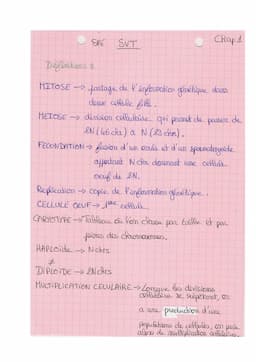 SVT
Chap 1
Définitions :
MITOSE → partage de l'information génétique dans
deux cellules filles.
MEIOSE → division cellulaire qui permet de passer de
2N (46 chr) à N (23 chr).
FECONDATION → fusion d'un ovule et d'un spermatozoïde
apportant N chr donnant une cellule
oeuf de 2N.
Replication → copie de l'information génétique.
CELLULE OEUF → 1ère cellule
CARYOTYPE → Tableau où l'on classe par taille et par
paires des chromosomes.
HAPLOÏDE → N chrs
≠
DIPLOÏDE → 2N chrs
MULTIPLICATION CELULAIRE → Lorsque les divisions
cellulaires se répètent, on
a une production d'une
populations de cellules, on parle
alors de multiplication cellulaire.